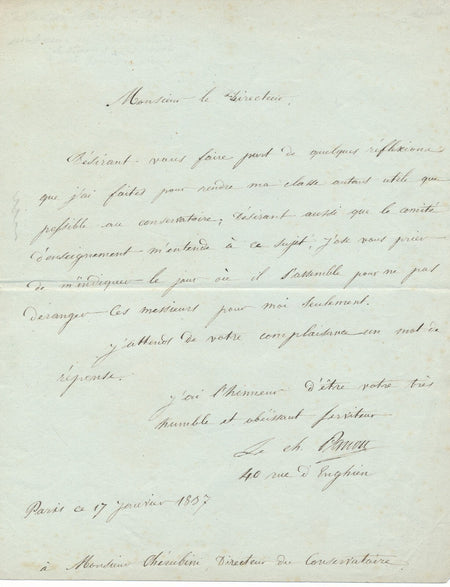 Monsieur le Directeur,
Désirant vous faire part de quelques réflexions
que j'ai faites pour rendre ma classe autant utile que
possible au conservatoire, désirant aussi que le comité
d'enseignement m'entende à ce sujet, j'ose vous prier
de m'indiquer le jour où il s'assemble pour ne pas
déranger ces messieurs pour moi seulement.
j'attends de votre complaisance un mot de
réponse.
j'ai l'honneur d'être votre très
humble et obéissant serviteur
Le ch.
40 rue d'Enghien
Paris ce 17 janvier 1837
à Monsieur Chérubini, Directeur du Conservatoire.